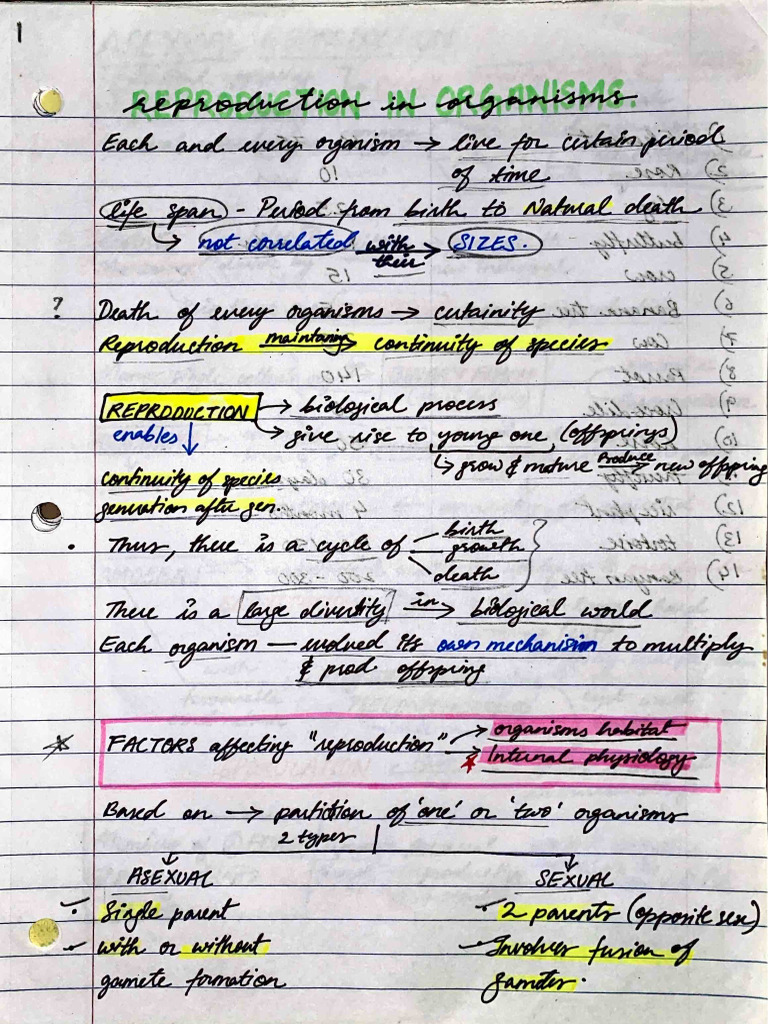 1
reproduction in organisms.
REPRODUCTION IN ORGANISMS.
Each and every organism → live for certain period
of time
life span - Period from birth to Natural death
↳ not correlated with their → SIZES.
? Death of every organisms → certainity
Reproduction maintaining → continuity of species
REPRODUCTION → biological process
enables ↓ → give rise to young one (offsprings)
↳ grow & mature Produce → new offspring
continuity of species
generation after gen.
• Thus, there is a cycle of birth
growth
death
There is a large diversity in → biological world
Each organism — evolved its own mechanism to multiply
& prod offspring
FACTORS affecting "reproduction" → organisms habitat
→ Internal physiology
Based on → partition of 'one' or 'two' organisms
2 types
ASEXUAL SEXUAL
Single parent 2 parents (opposite sex)
with or without Involves fusion of
gamete formation gametes.